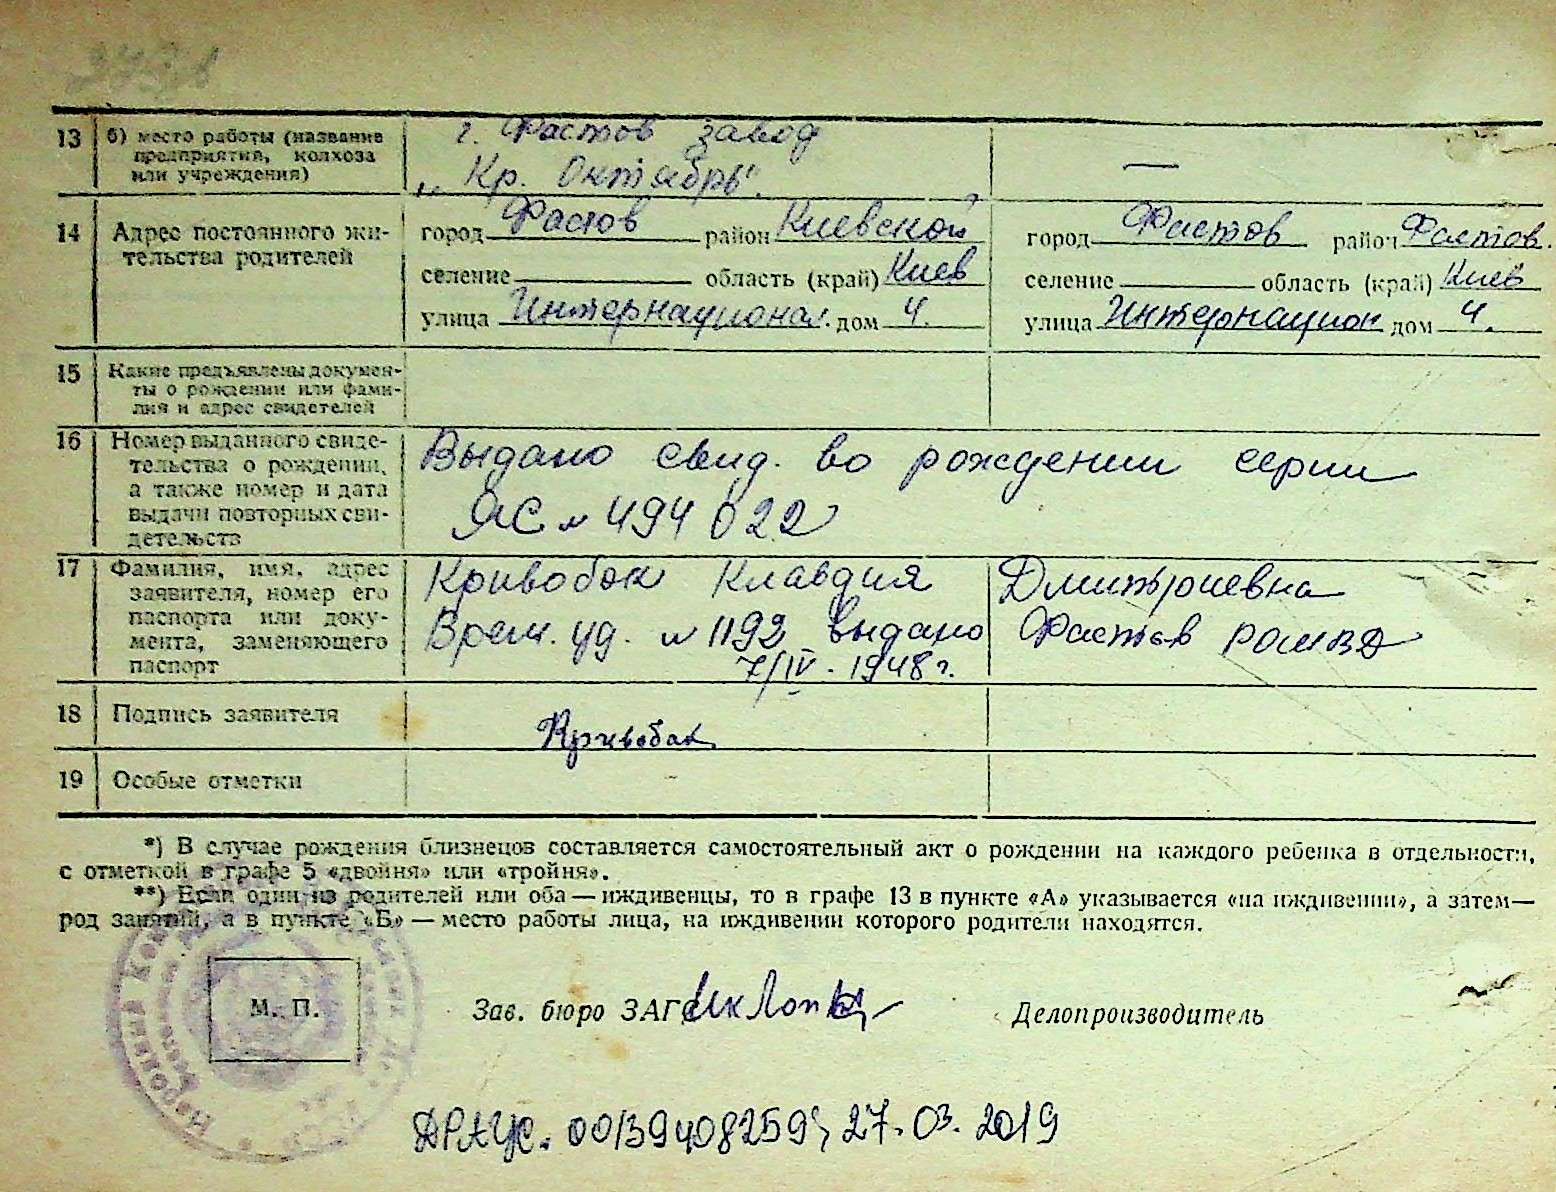 13 б) место работы (название предприятия, колхоза или учреждения)
г. Фастов завод
„Кр. Октябрь".
—
14 Адрес постоянного жи-
тельства родителей
город Фастов район Киевской
селение область (край) Киев
улица Интернационал. дом 4.
город Фастов район Фастов.
селение область (край) Киев
улица Интернацион дом 4.
15 Какие предъявлены докумен-
ты о рождении или фами-
лия и адрес свидетелей
16 Номер выданного свиде-
тельства о рождении,
а также номер и дата
выдачи повторных сви-
детельств
Выдано свид. во рождении серии
ЯС № 494022
17 Фамилия, имя, адрес
заявителя, номер его
паспорта или доку-
мента, заменяющего
паспорт
Кривобок Клавдия Дмитриевна
Врем. уд. № 1192 выдано Фастов РОМВД
7/IV - 1948 г.
18 Подпись заявителя
Кривобок
19 Особые отметки
*) В случае рождения близнецов составляется самостоятельный акт о рождении на каждого ребенка в отдельности,
с отметкой в графе 5 «двойня» или «тройня».
**) Если один из родителей или оба — иждивенцы, то в графе 13 в пункте «А» указывается «на иждивении», а затем —
род занятий, а в пункте «Б» — место работы лица, на иждивении которого родители находятся.
М. П.
Зав. бюро ЗАГС
Делопроизводитель
ДРАЦС. 00139408259; 27.03.2019